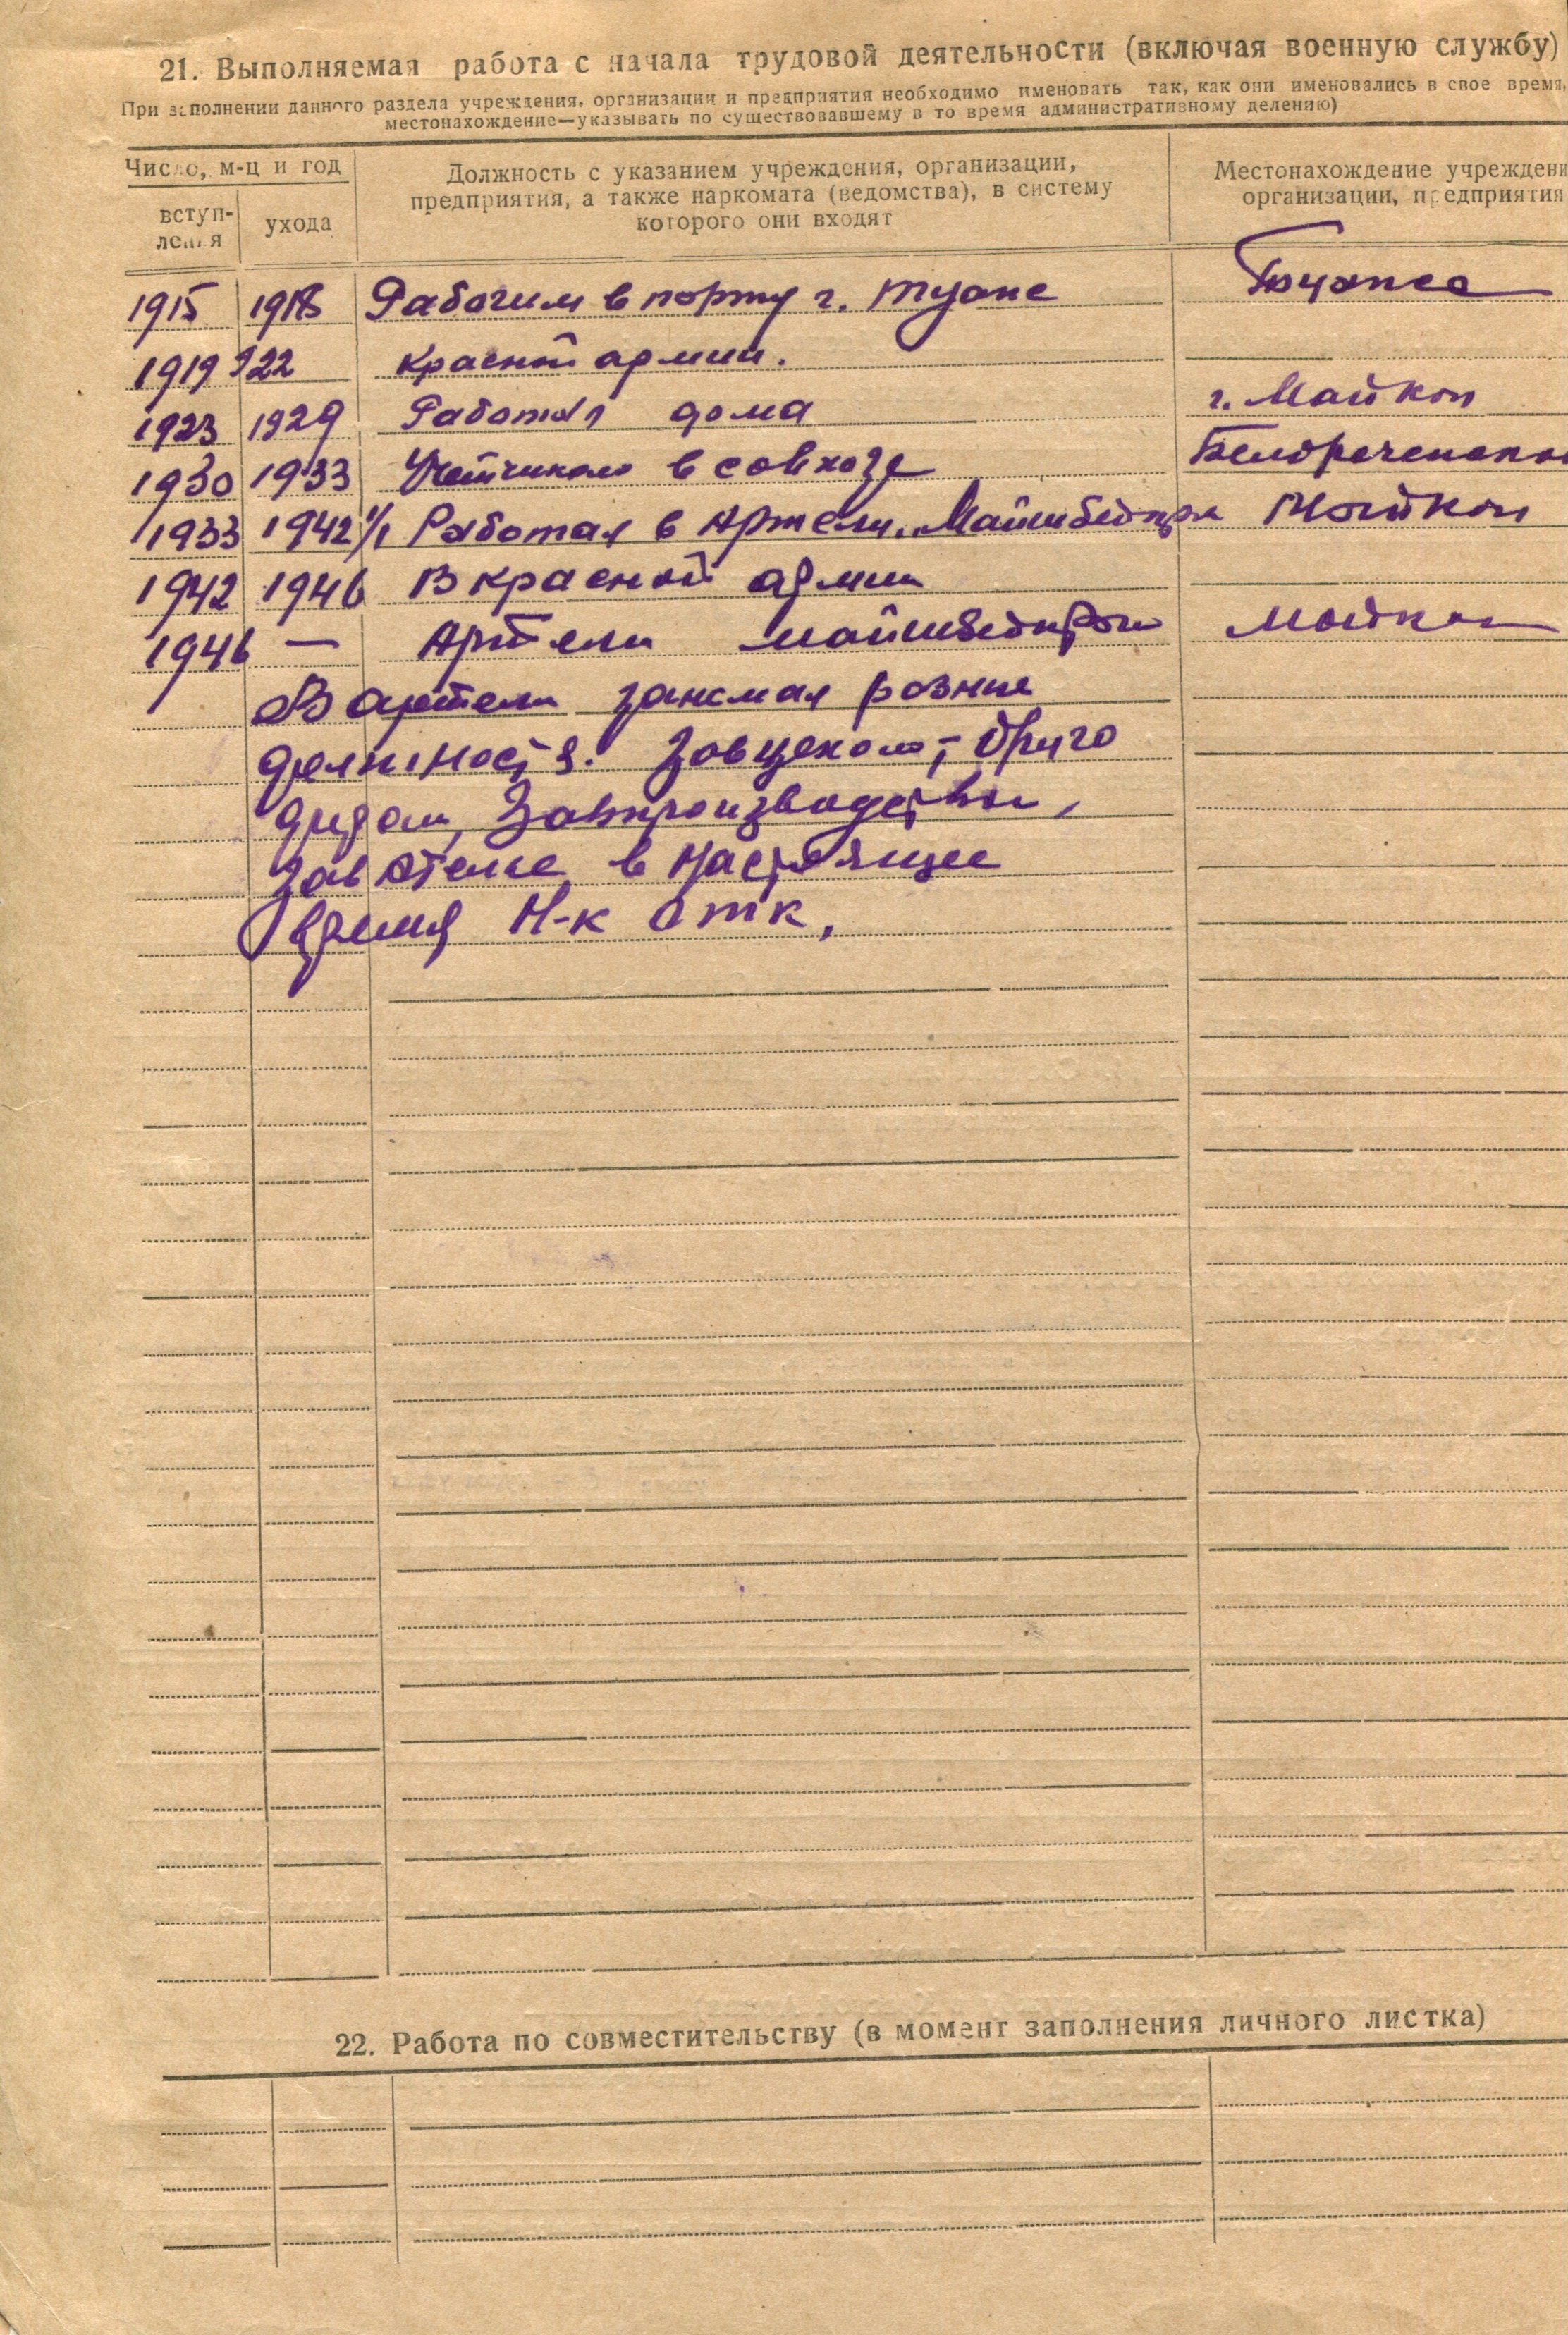 21. Выполняемая работа с начала трудовой деятельности (включая военную службу)
При заполнении данного раздела учреждения, организации и предприятия необходимо именовать так, как они именовались в свое время,
местонахождение—указывать по существовавшему в то время административному делению)
Число, м-ц и год
вступ-
ления
ухода
Должность с указанием учреждения, организации,
предприятия, а также наркомата (ведомства), в систему
которого они входят
Местонахождение учреждени
организации, предприятия
1915 1918 Рабочим в порту г. Туапсе
1919 922 Красной армии.
1923 1929 Работал дома г. Майкоп
1930 1933 Учетчиком в совхозе
1933 1942 Работал в Артели Майкоп
1942 1946 В красной армии
1946 — Артели Майкоп
В артели занимал разные
должностя. Завцехом, брига
диром, Завпроизводством,
зав Ателье в настоящее
время Н-к Отк,
22. Работа по совместительству (в момент заполнения личного листка)